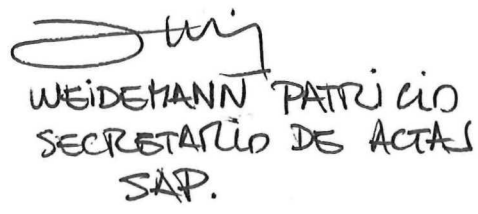 WEIDEMANN PATRICIO
SECRETARIO DE ACTAS
SAP.